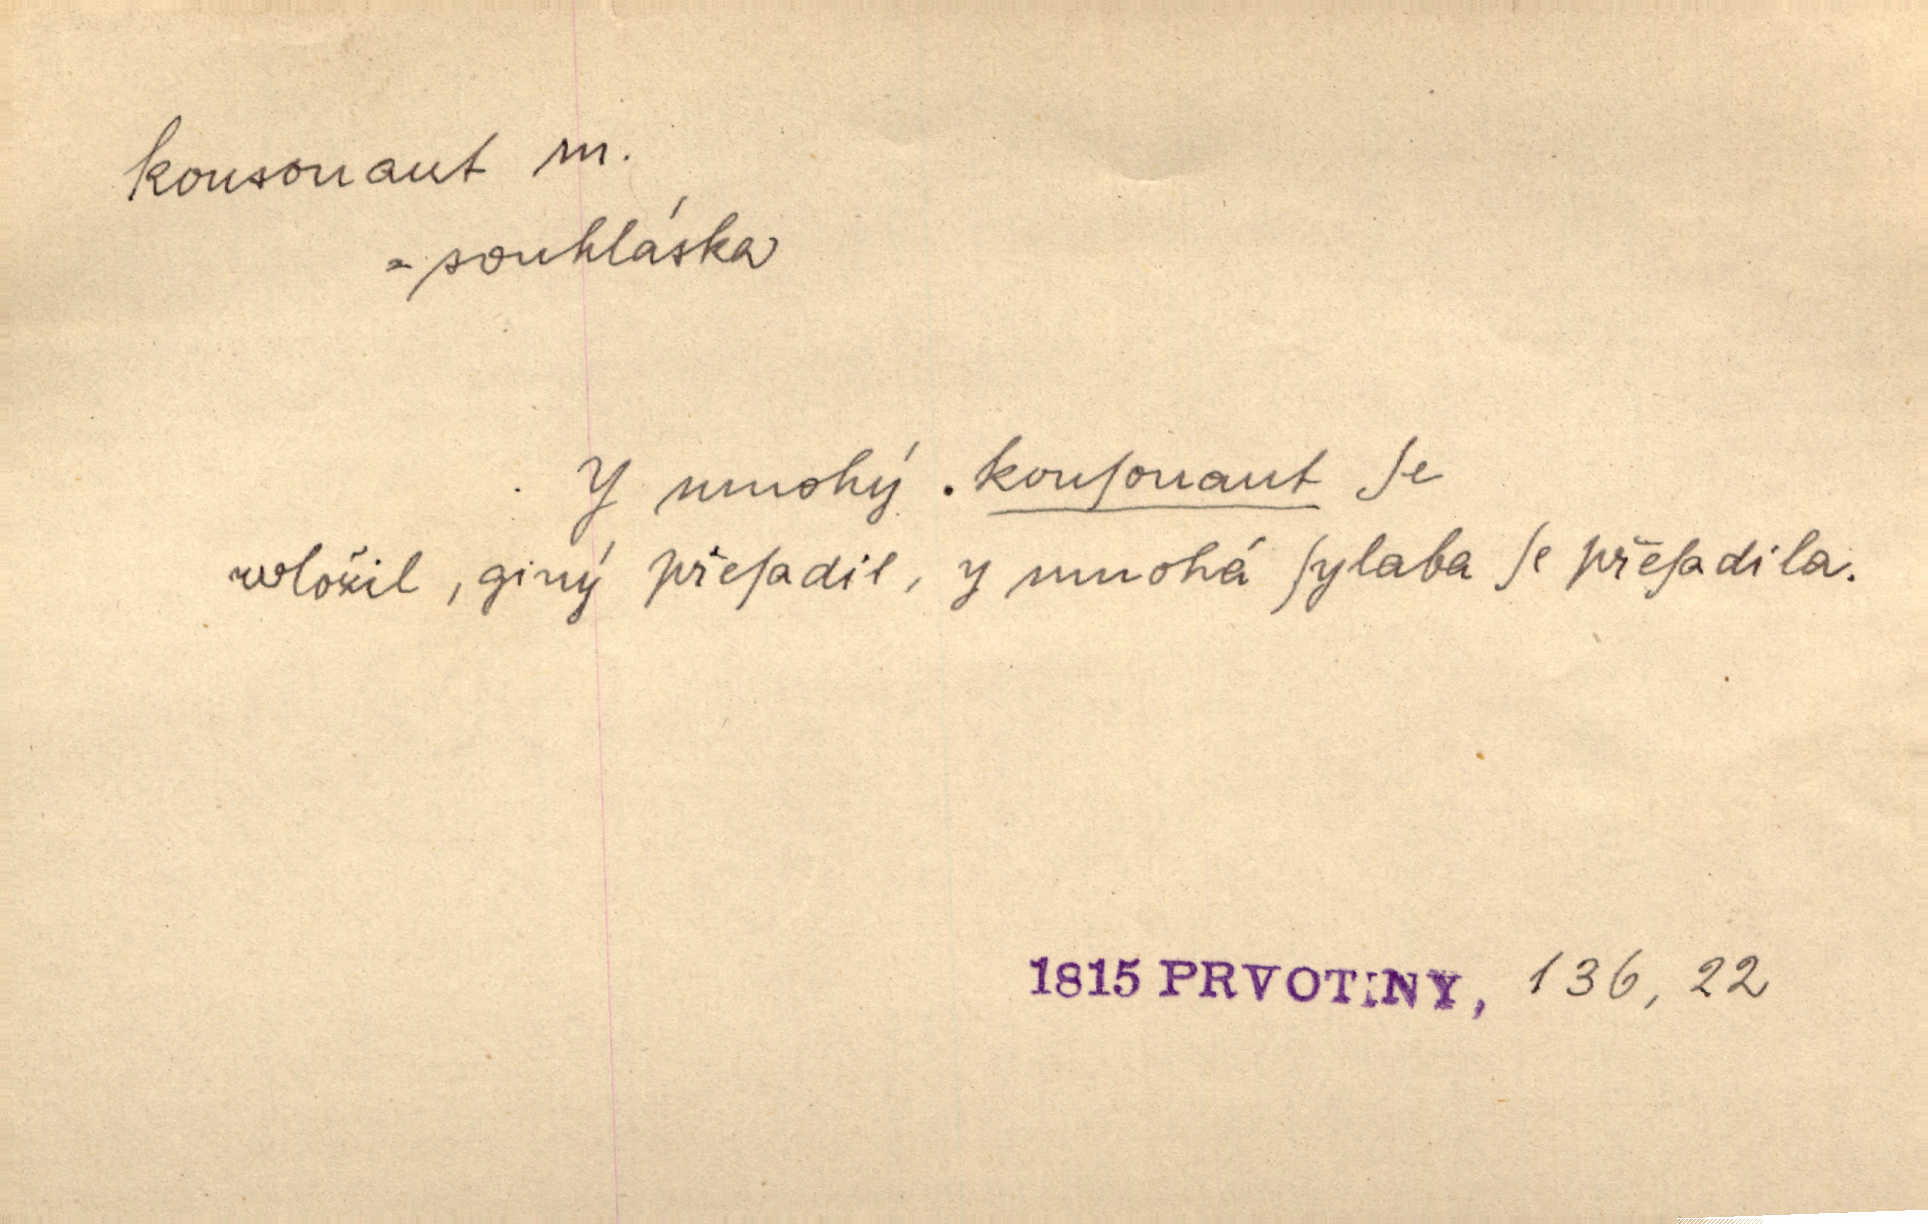 konsonant m.
= souhláska
Y mnohý konſonant ſe
wložil, giný přeſadil, y mnohá ſylaba ſe přeſadila.
1815 PRVOTINY, 136, 22